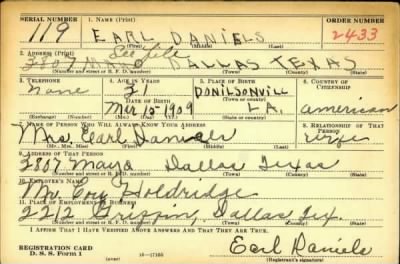 SERIAL NUMBER
1. NAME (Print)
ORDER NUMBER
119
EARL DANIELS
2433
(First) (Middle) (Last)
2. ADDRESS (Print)
2807 DALLAS TEXAS
(Number and street or R. F. D. number) (Town) (County) (State)
3. TELEPHONE
4. AGE IN YEARS
5. PLACE OF BIRTH
6. COUNTRY OF CITIZENSHIP
None
DONILSONVILL
DATE OF BIRTH
(Town or county)
Mar 15-1909
LA.
american
(Exchange) (Number)
(Mo.) (Day) (Yr.)
(State or country)
7. NAME OF PERSON WHO WILL ALWAYS KNOW YOUR ADDRESS
8. RELATIONSHIP OF THAT PERSON
Mrs. Earl Daniels
wife
(Mr., Mrs., Miss) (First) (Middle) (Last)
9. ADDRESS OF THAT PERSON
2807 Mayo Dallas Texas
(Number and street or R. F. D. number) (Town) (County) (State)
10. EMPLOYER'S NAME
Mr. Holdridge
11. PLACE OF EMPLOYMENT OR BUSINESS
2212 Griffin, Dallas Tex.
(Number and street or R. F. D. number) (Town) (County) (State)
I AFFIRM THAT I HAVE VERIFIED ABOVE ANSWERS AND THAT THEY ARE TRUE.
REGISTRATION CARD
D. S. S. Form 1
16-17105
Earl Daniels
(Registrant's signature)